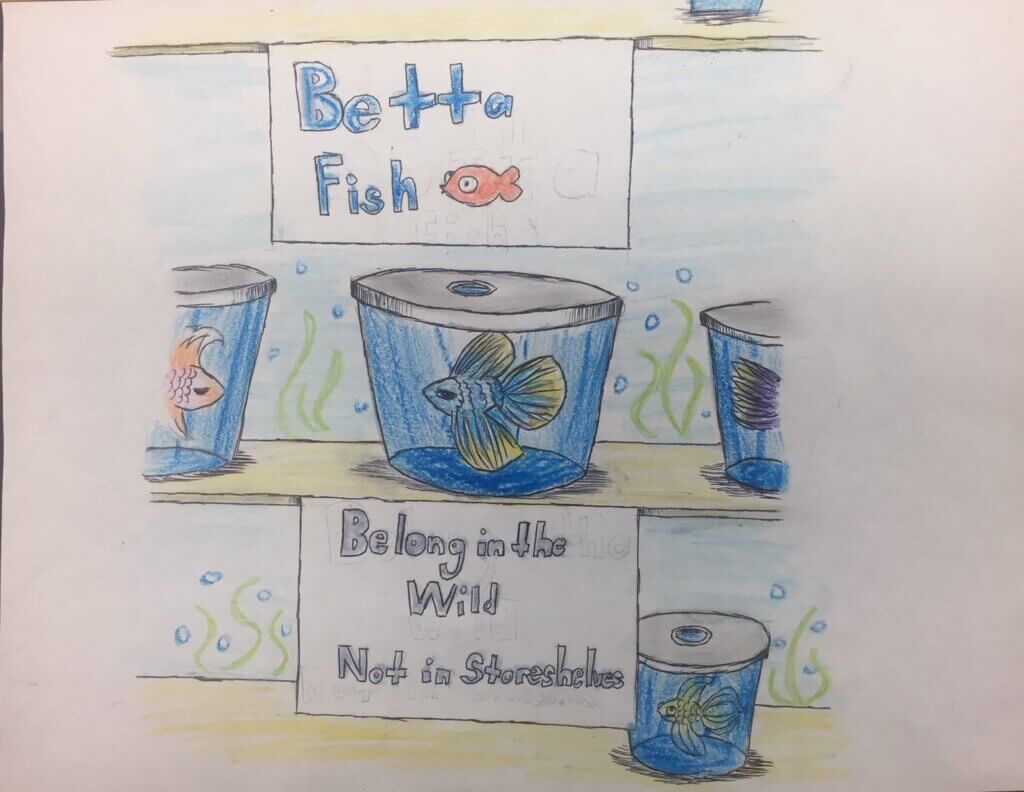 Betta
Fish
Belong in the
Wild
Not in Storeshelves